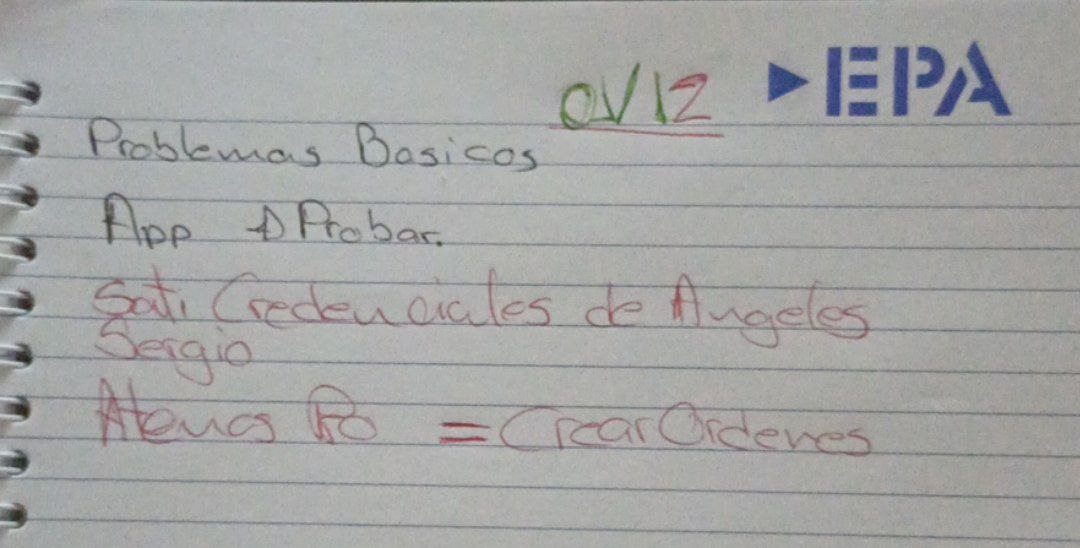 OV12 EPA
Problemas Basicos
App Probar.
Sati Credenciales de Angeles
Sergio
Atenas = Crear Ordenes